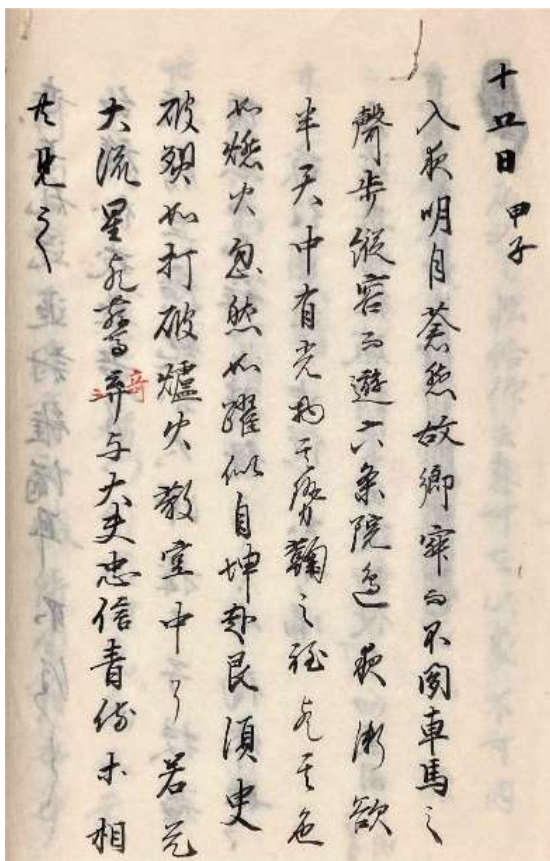 十五日 甲子
入夜明月蒼然故鄉寂而不聞車馬之
聲歩縱容而遊六条院邊夜漸欲
半天中有光物其勢鞠之程歟其色
如燃火忽然如躍似自坤赴艮須臾
破裂如打破爐火散空中了若是
大流星歟驚弃与大夫忠信青侍等相
奇
共見之